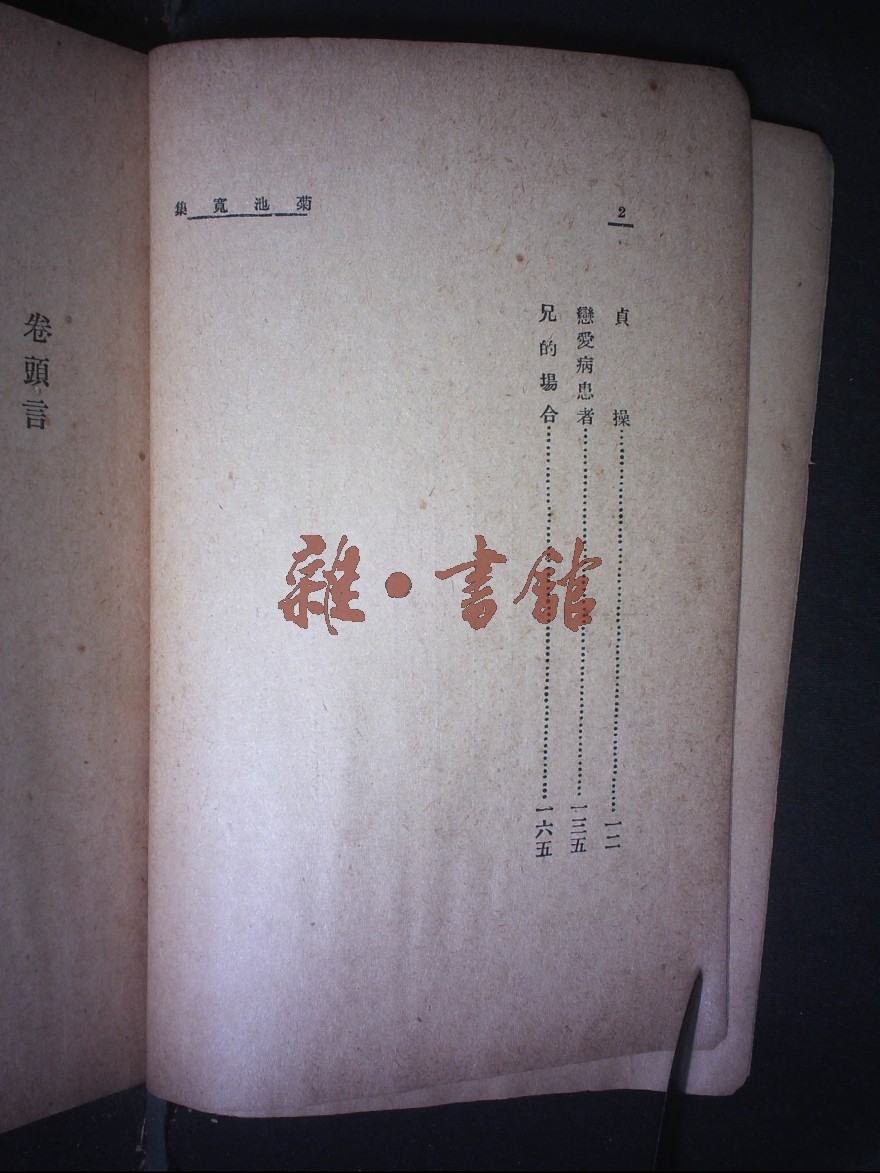 2
菊池寬集
貞操
戀愛病患者……一三五
兄的場合……一六五
卷頭言
雜·書館